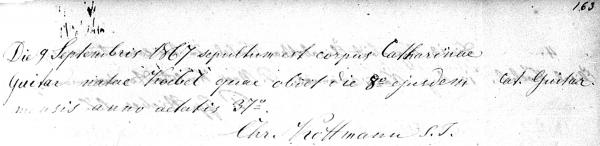 163
Die 9 Septembris 1867 sepultum est corpus Catharinae
Guitar natae Köbel quae obiit die 8a ejusdem cat. Guitar.
mensis anno aetatis 37o.
Chr. Köffmann S.J.